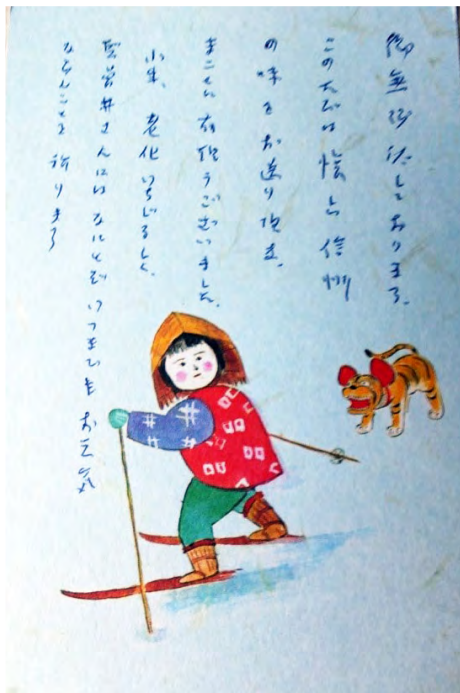 御無沙汰しております。
このたびは懐しい信州
の味をお送り頂き、
まことに有難うございました。
小生、老化いちじるしく、
井さんにはなにとぞいつまでもお元気
ならんことを祈ります